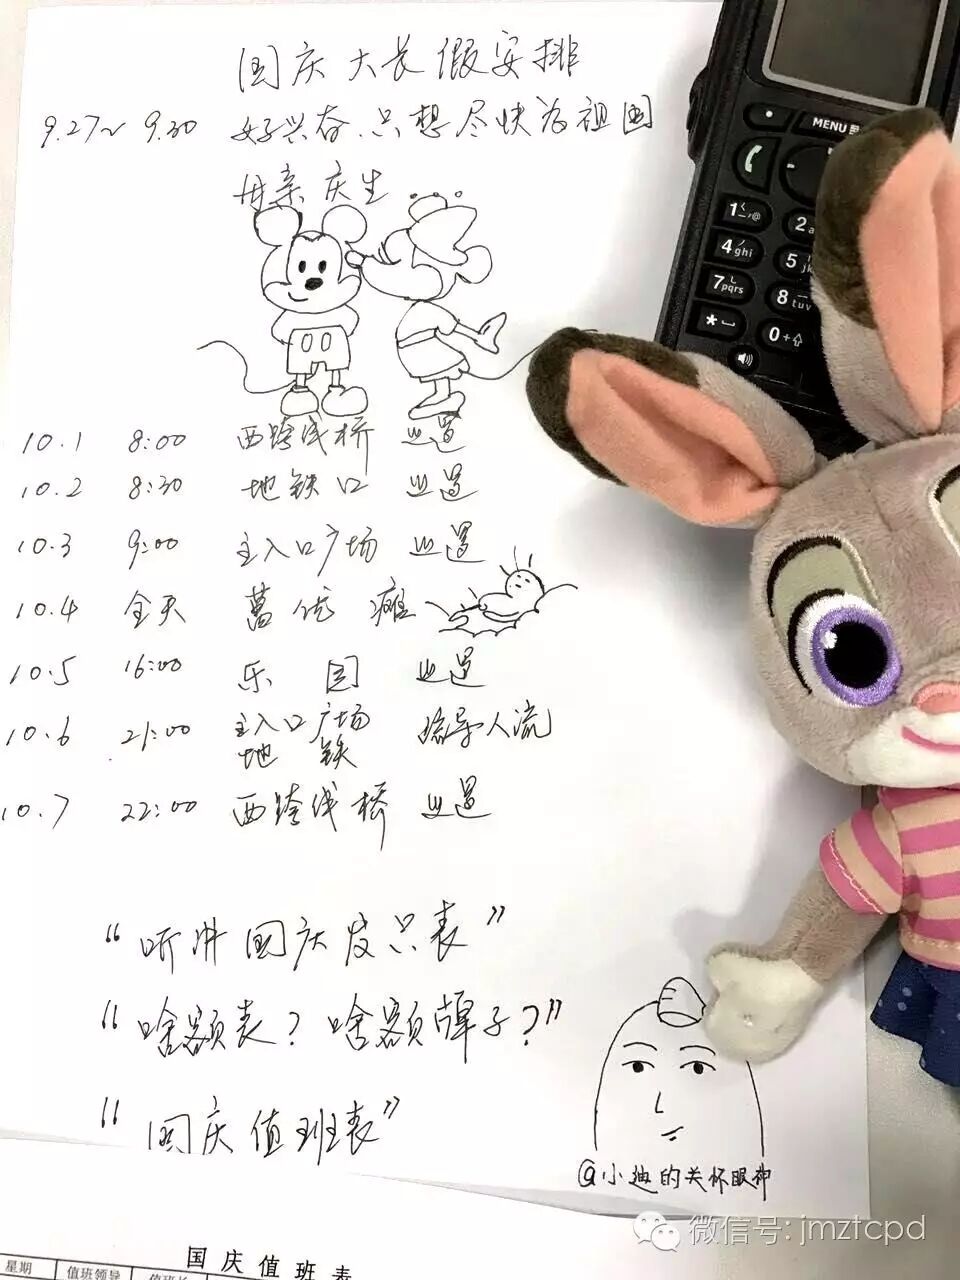 国庆大长假安排
9.27~9.30 好兴奋.只想尽快为祖国
母亲庆生
10.1 8:00 西跨线桥
10.2 8:30 地铁口
10.3 9:00 主入口广场
10.4 全天 葛优瘫
10.5 16:00 乐园
10.6 21:00 主入口广场 疏导人流
地铁
10.7 22:00 西跨线桥
“听讲国庆发只表”
“啥额表？啥额牌子？”
“国庆值班表”
@小迪的关怀眼神
MENU
1
2
4 ghi
5
7 pqrs
8 tuv
*
0+
微信号: jmztcpd
国庆值班表
星期 值班领导 值班长